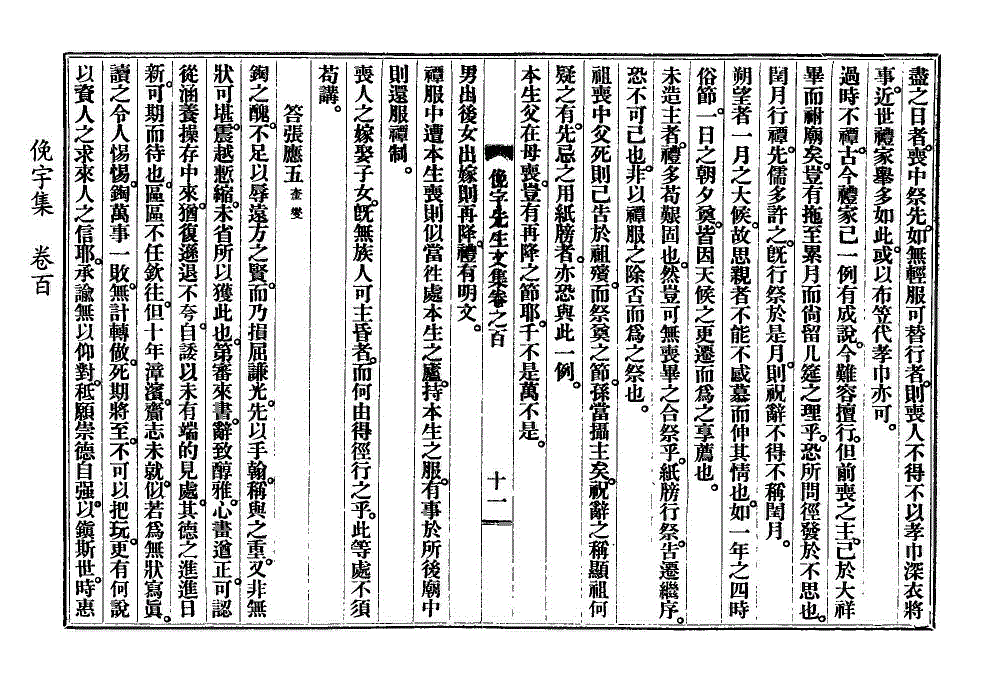 盡之日者。喪中祭先。如無輕服可替行者。則喪人不得不以孝巾深衣將
事。近世禮家舉多如此。或以布笠代孝巾亦可。
過時不禫。古今禮家已一例有成說。今難容擅行。但前喪之主。已於大祥
畢而祔廟矣。豈有拖至累月而尙留几筵之理乎。恐所問徑發於不思也。
閏月行禫。先儒多許之。旣行祭於是月。則祝辭不得不稱閏月。
朔望者一月之大候。故思親者不能不感慕而伸其情也。如一年之四時
俗節。一日之朝夕奠。皆因天候之更遷而爲之享薦也。
未造主者。禮多苟艱固也。然豈可無喪畢之合祭乎。紙牓行祭。告遷繼序。
恐不可已也。非以禫服之除否而爲之祭也。
祖喪中父死則已告於祖殯。而祭奠之節。孫當攝主矣。祝辭之稱顯祖何
疑之有。先忌之用紙牓者。亦恐與此一例。
本生父在母喪。豈有再降之節耶。千不是萬不是。
俛宇先生文集卷之百
十一
男出後女出嫁則再降。禮有明文。
禫服中遭本生喪則似當往處本生之廬。持本生之服。有事於所後廟中
則還服禫制。
喪人之嫁娶子女。旣無族人可主昏者。而何由得徑行之乎。此等處不須
苟講。
答張應五 奎燮
鋾之醜。不足以辱遠方之賢。而乃損屈謙光。先以手翰。稱與之重。又非無
狀可堪。震越慙縮。未省所以獲此也。第審來書。辭致醇雅。心畫遒正。可認
從涵養操存中來。猶復遜退不夸。自諉以未有端的見處。其德之進進日
新。可期而待也。區區不任欽往。但十年漳濱。齎志未就。似若爲無狀寫眞。
讀之令人惕惕。鋾萬事一敗。無計轉倣。死期將至。不可以把玩。更有何說
以資人之求。來人之信耶。承諭無以仰對。秪願崇德自强。以鎭斯世。時惠
俛宇集 卷百